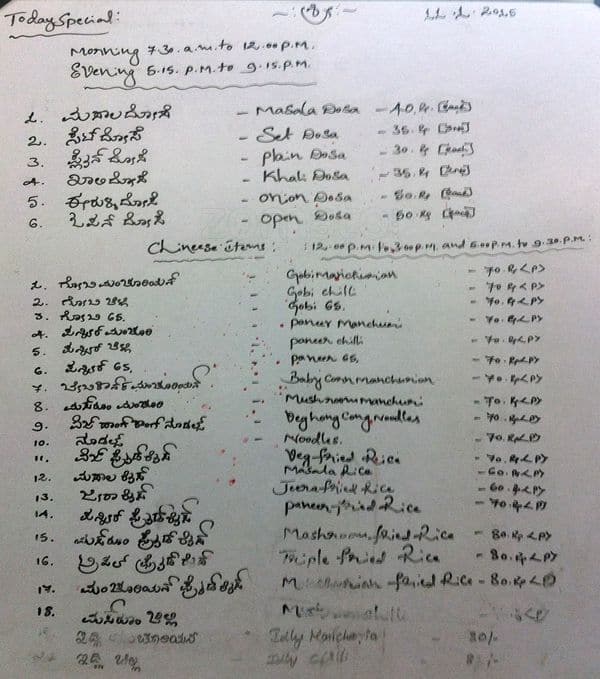 Today Special: ಶ್ರೀ 11.1.2015
Morning 7.30.a.m. to 12.00 P.M.
Evening 5.15. P.M. to 9.15.P.M.
1. ಮಸಾಲ ದೋಸೆ - Masala Dosa - 40.Rp. [Each]
2. ಸೆಟ್ ದೋಸೆ - Set Dosa - 35. Rp
3. ಪ್ಲೈನ್ ದೋಸೆ - plain Dosa - 30. Rp [Each]
4. ಖಾಲಿ ದೋಸೆ - Khali Dosa - 35. Rp
5. ಈರುಳ್ಳಿ ದೋಸೆ - onion Dosa - 50. Rp [Each]
6. ಓಪನ್ ದೋಸೆ - open Dosa - 50 Rp [Each]
Chineese items: : 12.00 P.M. to 3.00 P.M. and 6.00 P.M. to 9.30 P.M:
1. ಗೋಬಿ ಮಂಚೂರಿಯನ್ - Gobi Manchurian - 70. Rp <P>
2. ಗೋಬಿ ಚಿಲ್ಲಿ - Gobi chilli - 70 Rp <P>
3. ಗೋಬಿ 65. - Gobi 65. - 70. Rp <P>
4. ಪನ್ನೀರ್ ಮಂಚೂರಿ - paneer Manchuri - 70. Rp <P>
5. ಪನ್ನೀರ್ ಚಿಲ್ಲಿ - paneer chilli - 70. Rp <P>
6. ಪನ್ನೀರ್ 65. - paneer 65. - 70. Rp <P>
7. ಬೇಬಿಕಾರ್ನ್ ಮಂಚೂರಿಯನ್ - Baby Corn Manchurian - 70. Rp <P>
8. ಮಶ್ರೂಂ ಮಂಚೂರಿ - Mushroom manchuri - 70. Rp <P>
9. ವೆಜ್ ಹಾಂಗ್ ಕಾಂಗ್ ನೂಡಲ್ಸ್ - Veg hong Cong Noodles - 70. Rp <P>
10. ನೂಡಲ್ಸ್ - Noodles. - 70. Rp <P>
11. ವೆಜ್ ಫ್ರೈಡ್ ರೈಸ್ Veg-fried Rice - 70. Rp <P>
12. ಮಸಾಲ ರೈಸ್ Masala Rice - 60. Rp <P>
13. ಜೀರಾ ರೈಸ್ Jeera-fried Rice - 60. Rp <P>
14. ಪನ್ನೀರ್ ಫ್ರೈಡ್ ರೈಸ್ paneer-fried Rice - 70 Rp <P>
15. ಮಶ್ರೂಂ ಫ್ರೈಡ್ ರೈಸ್ Mashroom fried Rice - 80. Rp <P>
16. ತ್ರಿಪಲ್ ಫ್ರೈಡ್ ರೈಸ್ Triple fried Rice - 80. Rp <P>
17. ಮಂಚೂರಿಯನ್ ಫ್ರೈಡ್ ರೈಸ್ fried Rice - 80. Rp <P>
18. ಮಶ್ರೂಂ ಚಿಲ್ಲಿ <P>
ಇಡ್ಲಿ - Idly - 80/-
ಇಡ್ಲಿ ಚಿಲ್ಲಿ - Idly